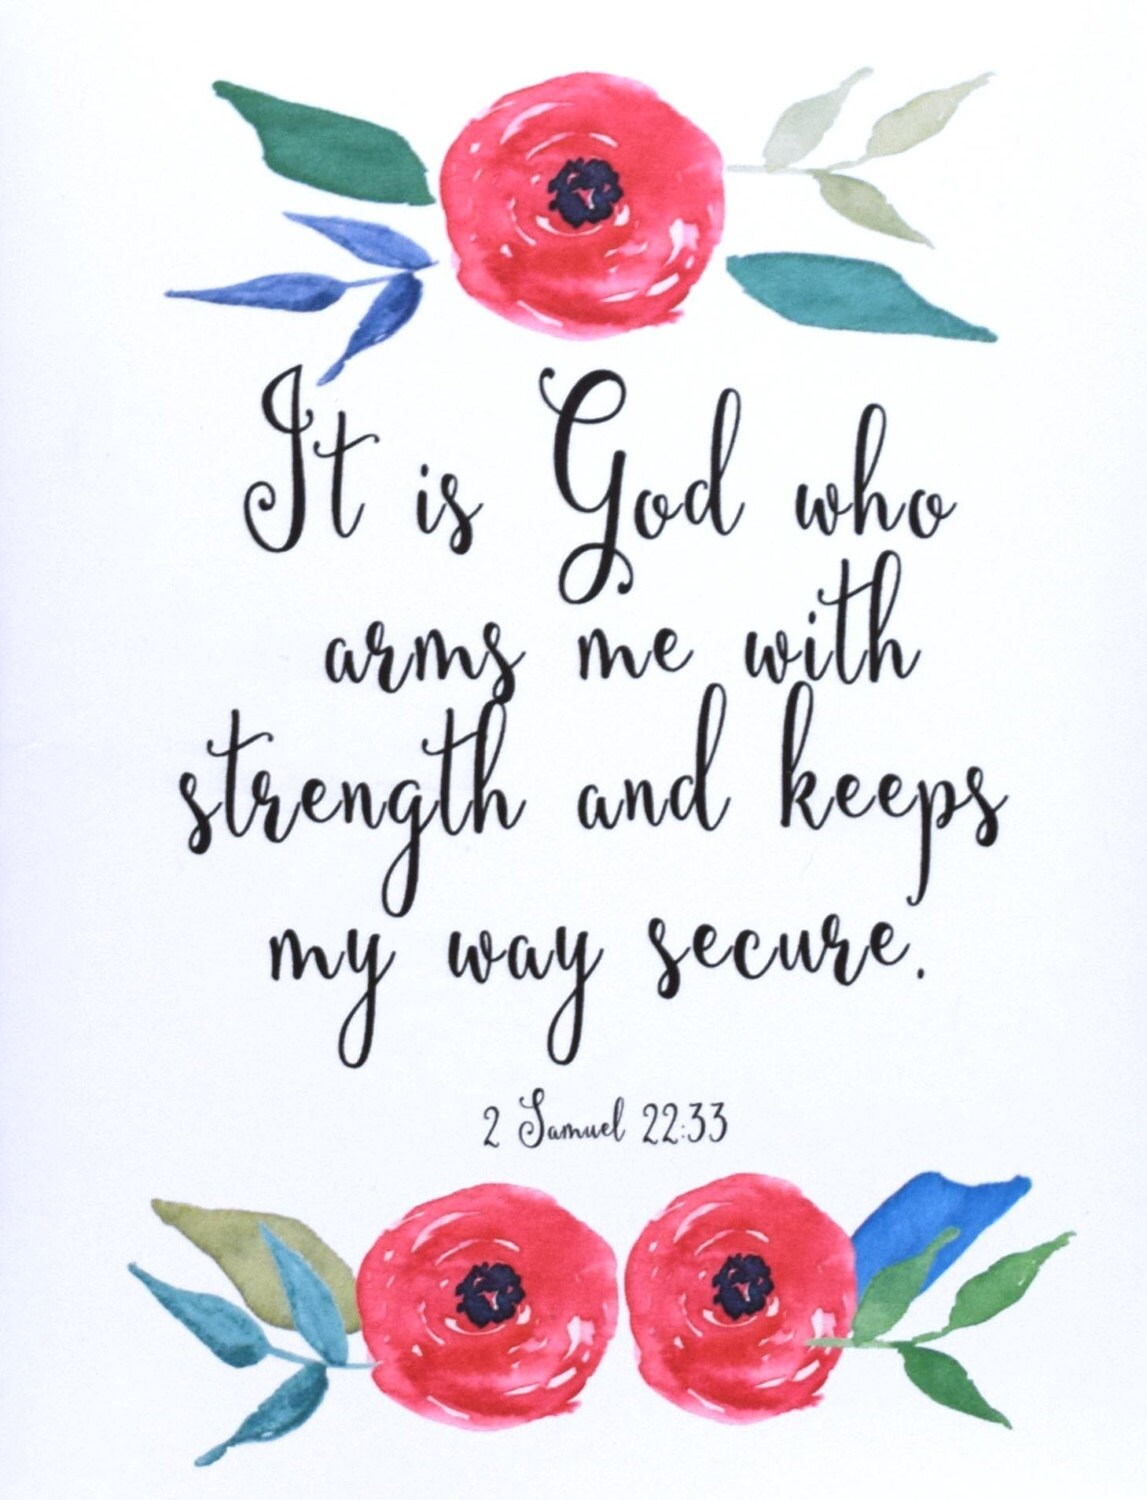 It is God who
arms me with
strength and keeps
my way secure.
2 Samuel 22:33